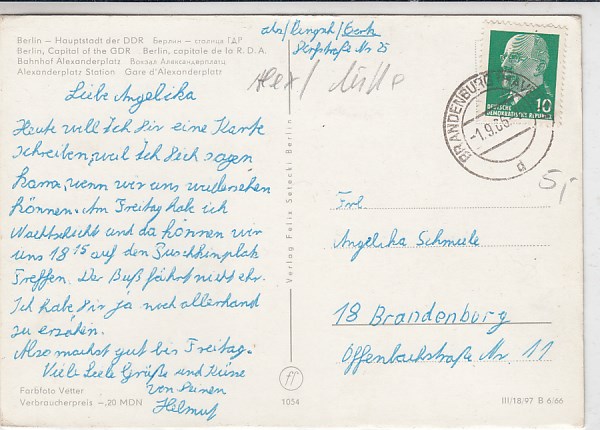 Berlin — Hauptstadt der DDR   Берлин — столица ГДР
Berlin, Capital of the GDR   Berlin, capitale de la R. D. A.
Bahnhof Alexanderplatz   Вокзал Александерплатц
Alexanderplatz Station   Gare d'Alexanderplatz
Liebe Angelika
Heute will Ich Dir eine Karte
schreiben, weil Ich Dich sagen
kann, wenn wir uns wiedersehen
können. Am Freitag habe ich
Nachtschicht und da können wir
uns 18 15 auf den Puschkinplatz
Treffen. Der Buß fährt nicht ehr.
Ich habe Dir ja noch allerhand
zu erzählen.
Also machst gut bis Freitag.
Viele Liebe Grüße und Küsse
von Deinen
Helmut
Farbfoto Vetter
Verbraucherpreis —,20 MDN
Verlag Felix Setecki Berlin
1054
III/18/97 B 6/66
Nr 25
BRANDENBURG (HAVEL)
-1.9.66
d
10
DEUTSCHE
DEMOKRATISCHE REPUBLIK
5,-
Frl
Angelika Schmiele
18 Brandenburg
Offenbachstraße Nr. 11